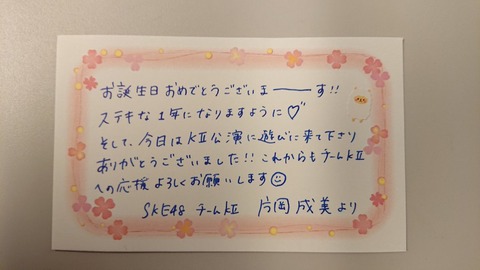 お誕生日おめでとうございま――す!!
ステキな1年になりますように♡
そして、今日はKⅡ公演に遊びに来て下さり
ありがとうございました!! これからもチームKⅡ
への応援よろしくお願いします☺
SKE48 チームKⅡ 片岡成美より